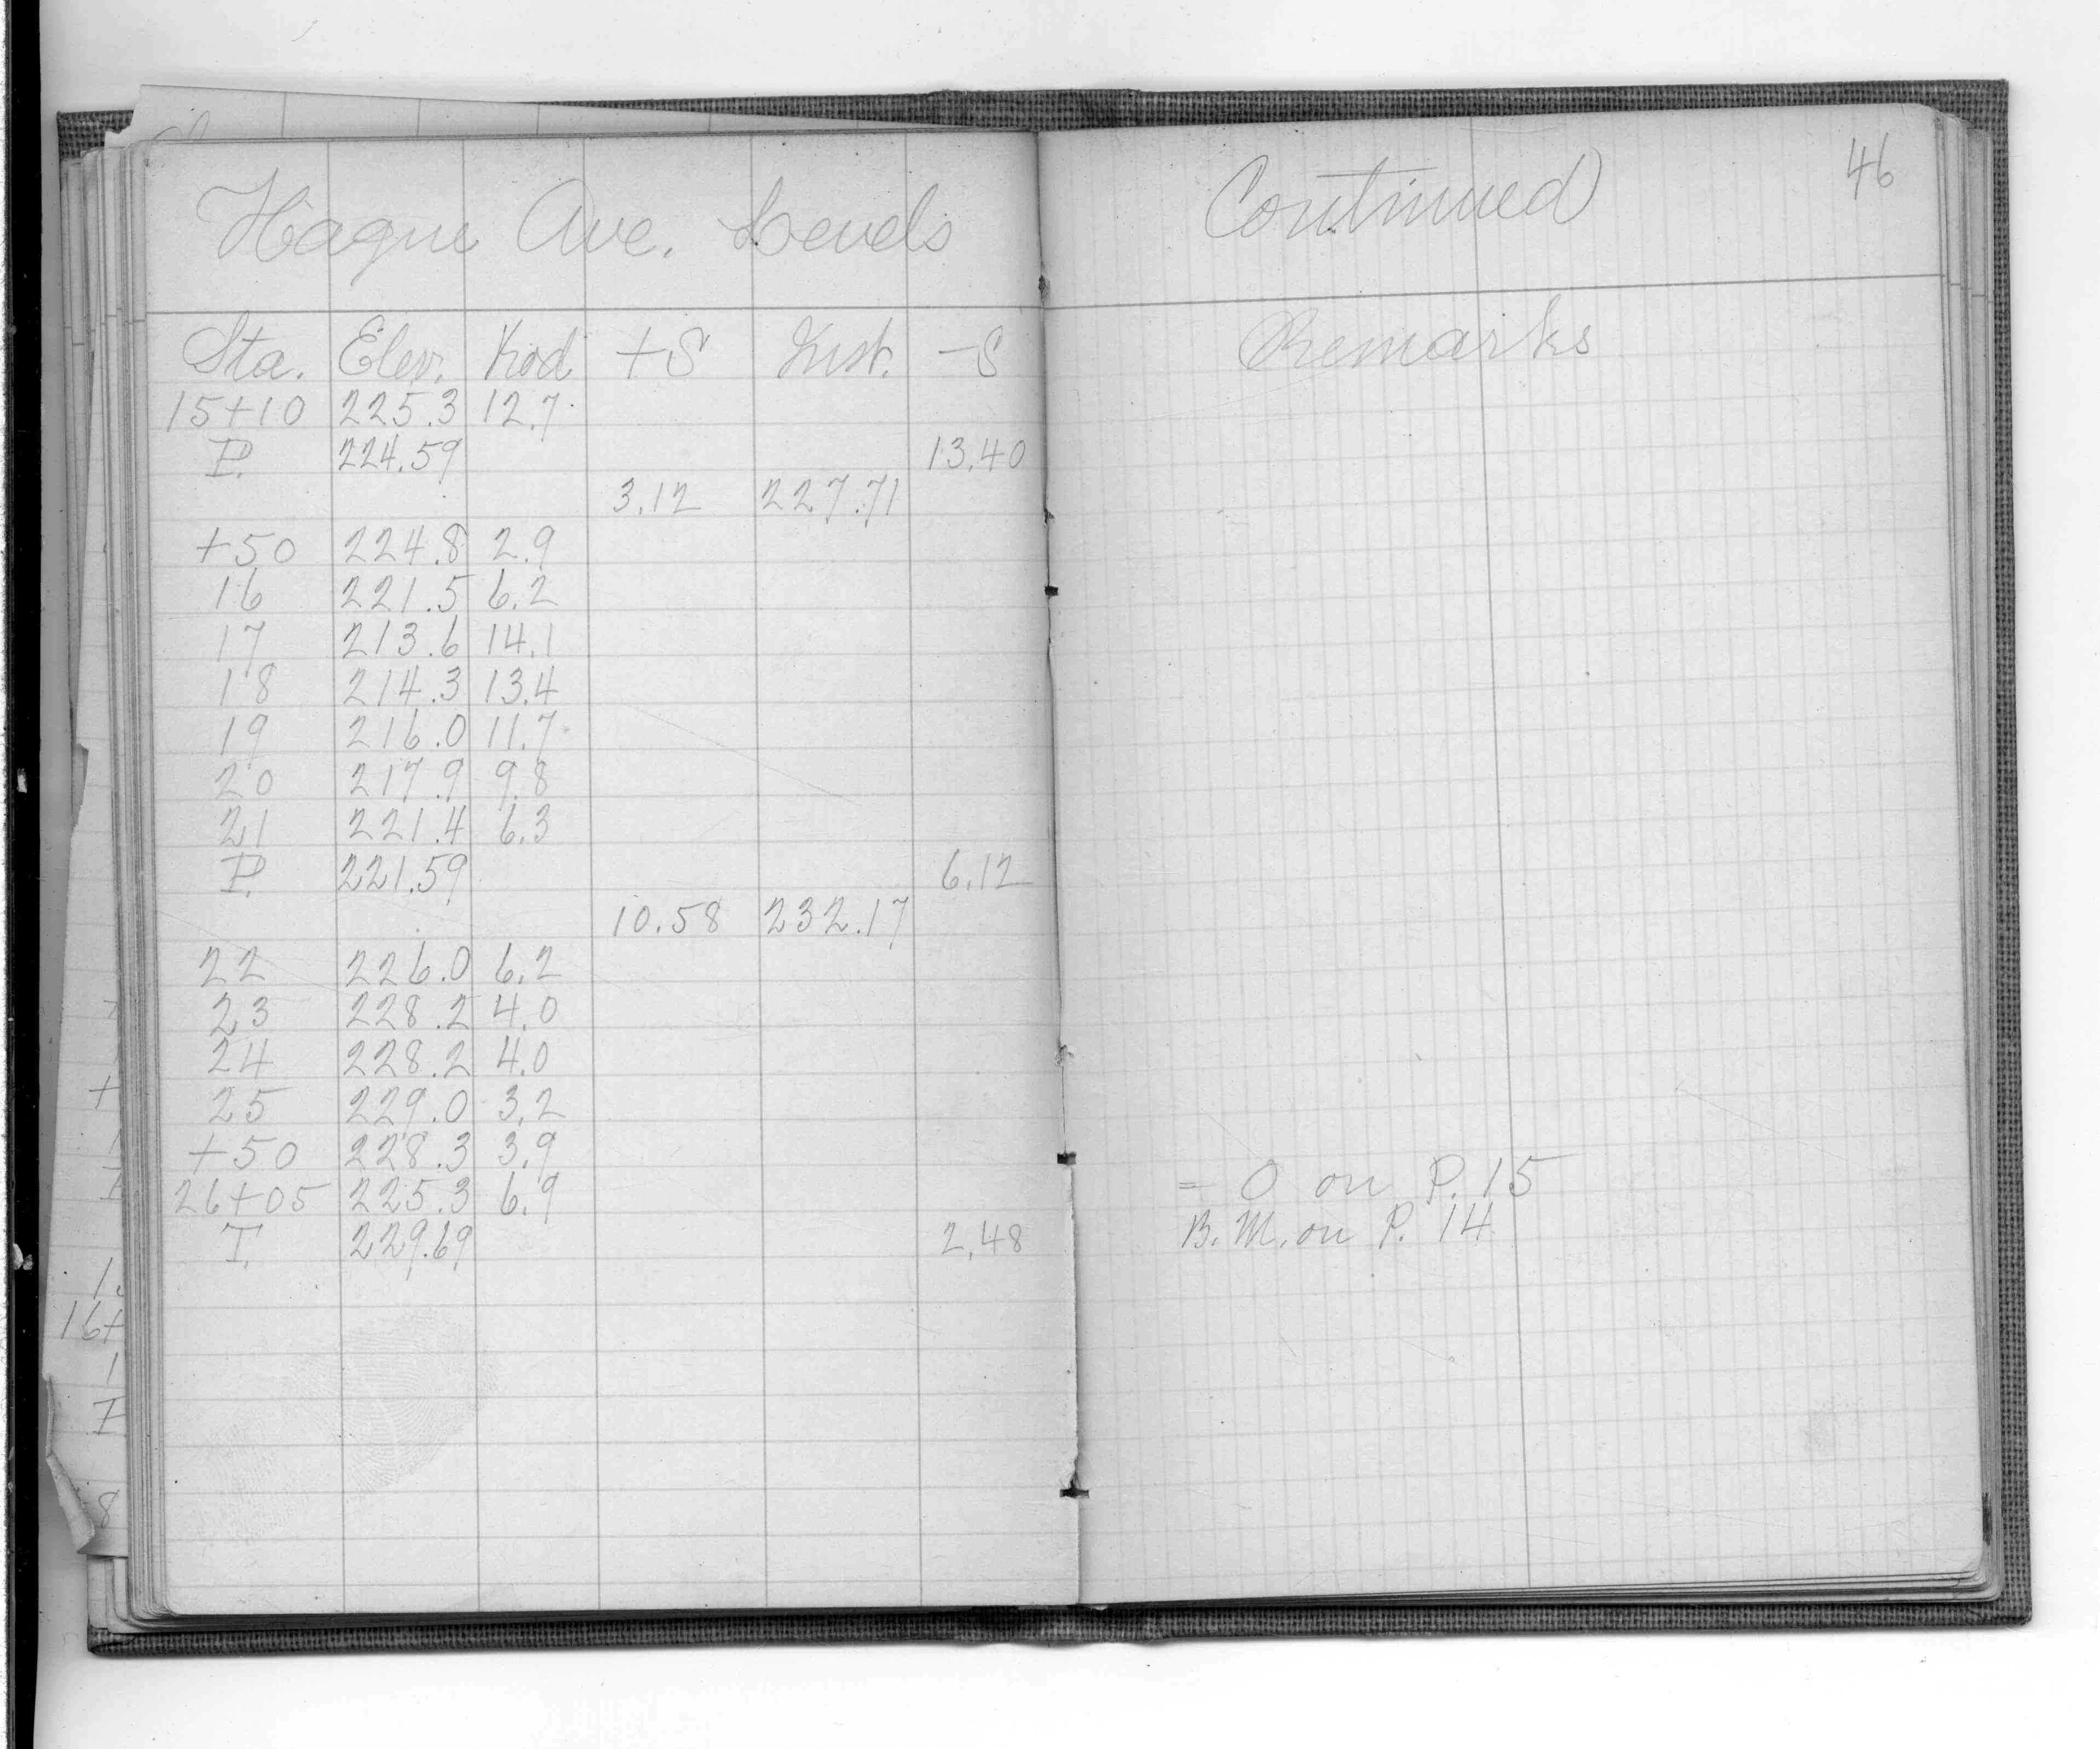 Hague Ave. Levels
Continued
46
Sta. Elev. Rod +S Inst. -S
Remarks
15+10 225.3 12.7
P. 224.59 13.40
3.12 227.71
+50 224.8 2.9
16 221.5 6.2
17 213.6 14.1
18 214.3 13.4
19 216.0 11.7
20 217.9 9.8
21 221.4 6.3
P. 221.59 6.12
10.58 232.17
22 226.0 6.2
23 228.2 4.0
24 228.2 4.0
25 229.0 3.2
+50 228.3 3.9
26+05 225.3 6.9 = 0 on P. 15
T. 229.69 2.48 B.M. on P. 14